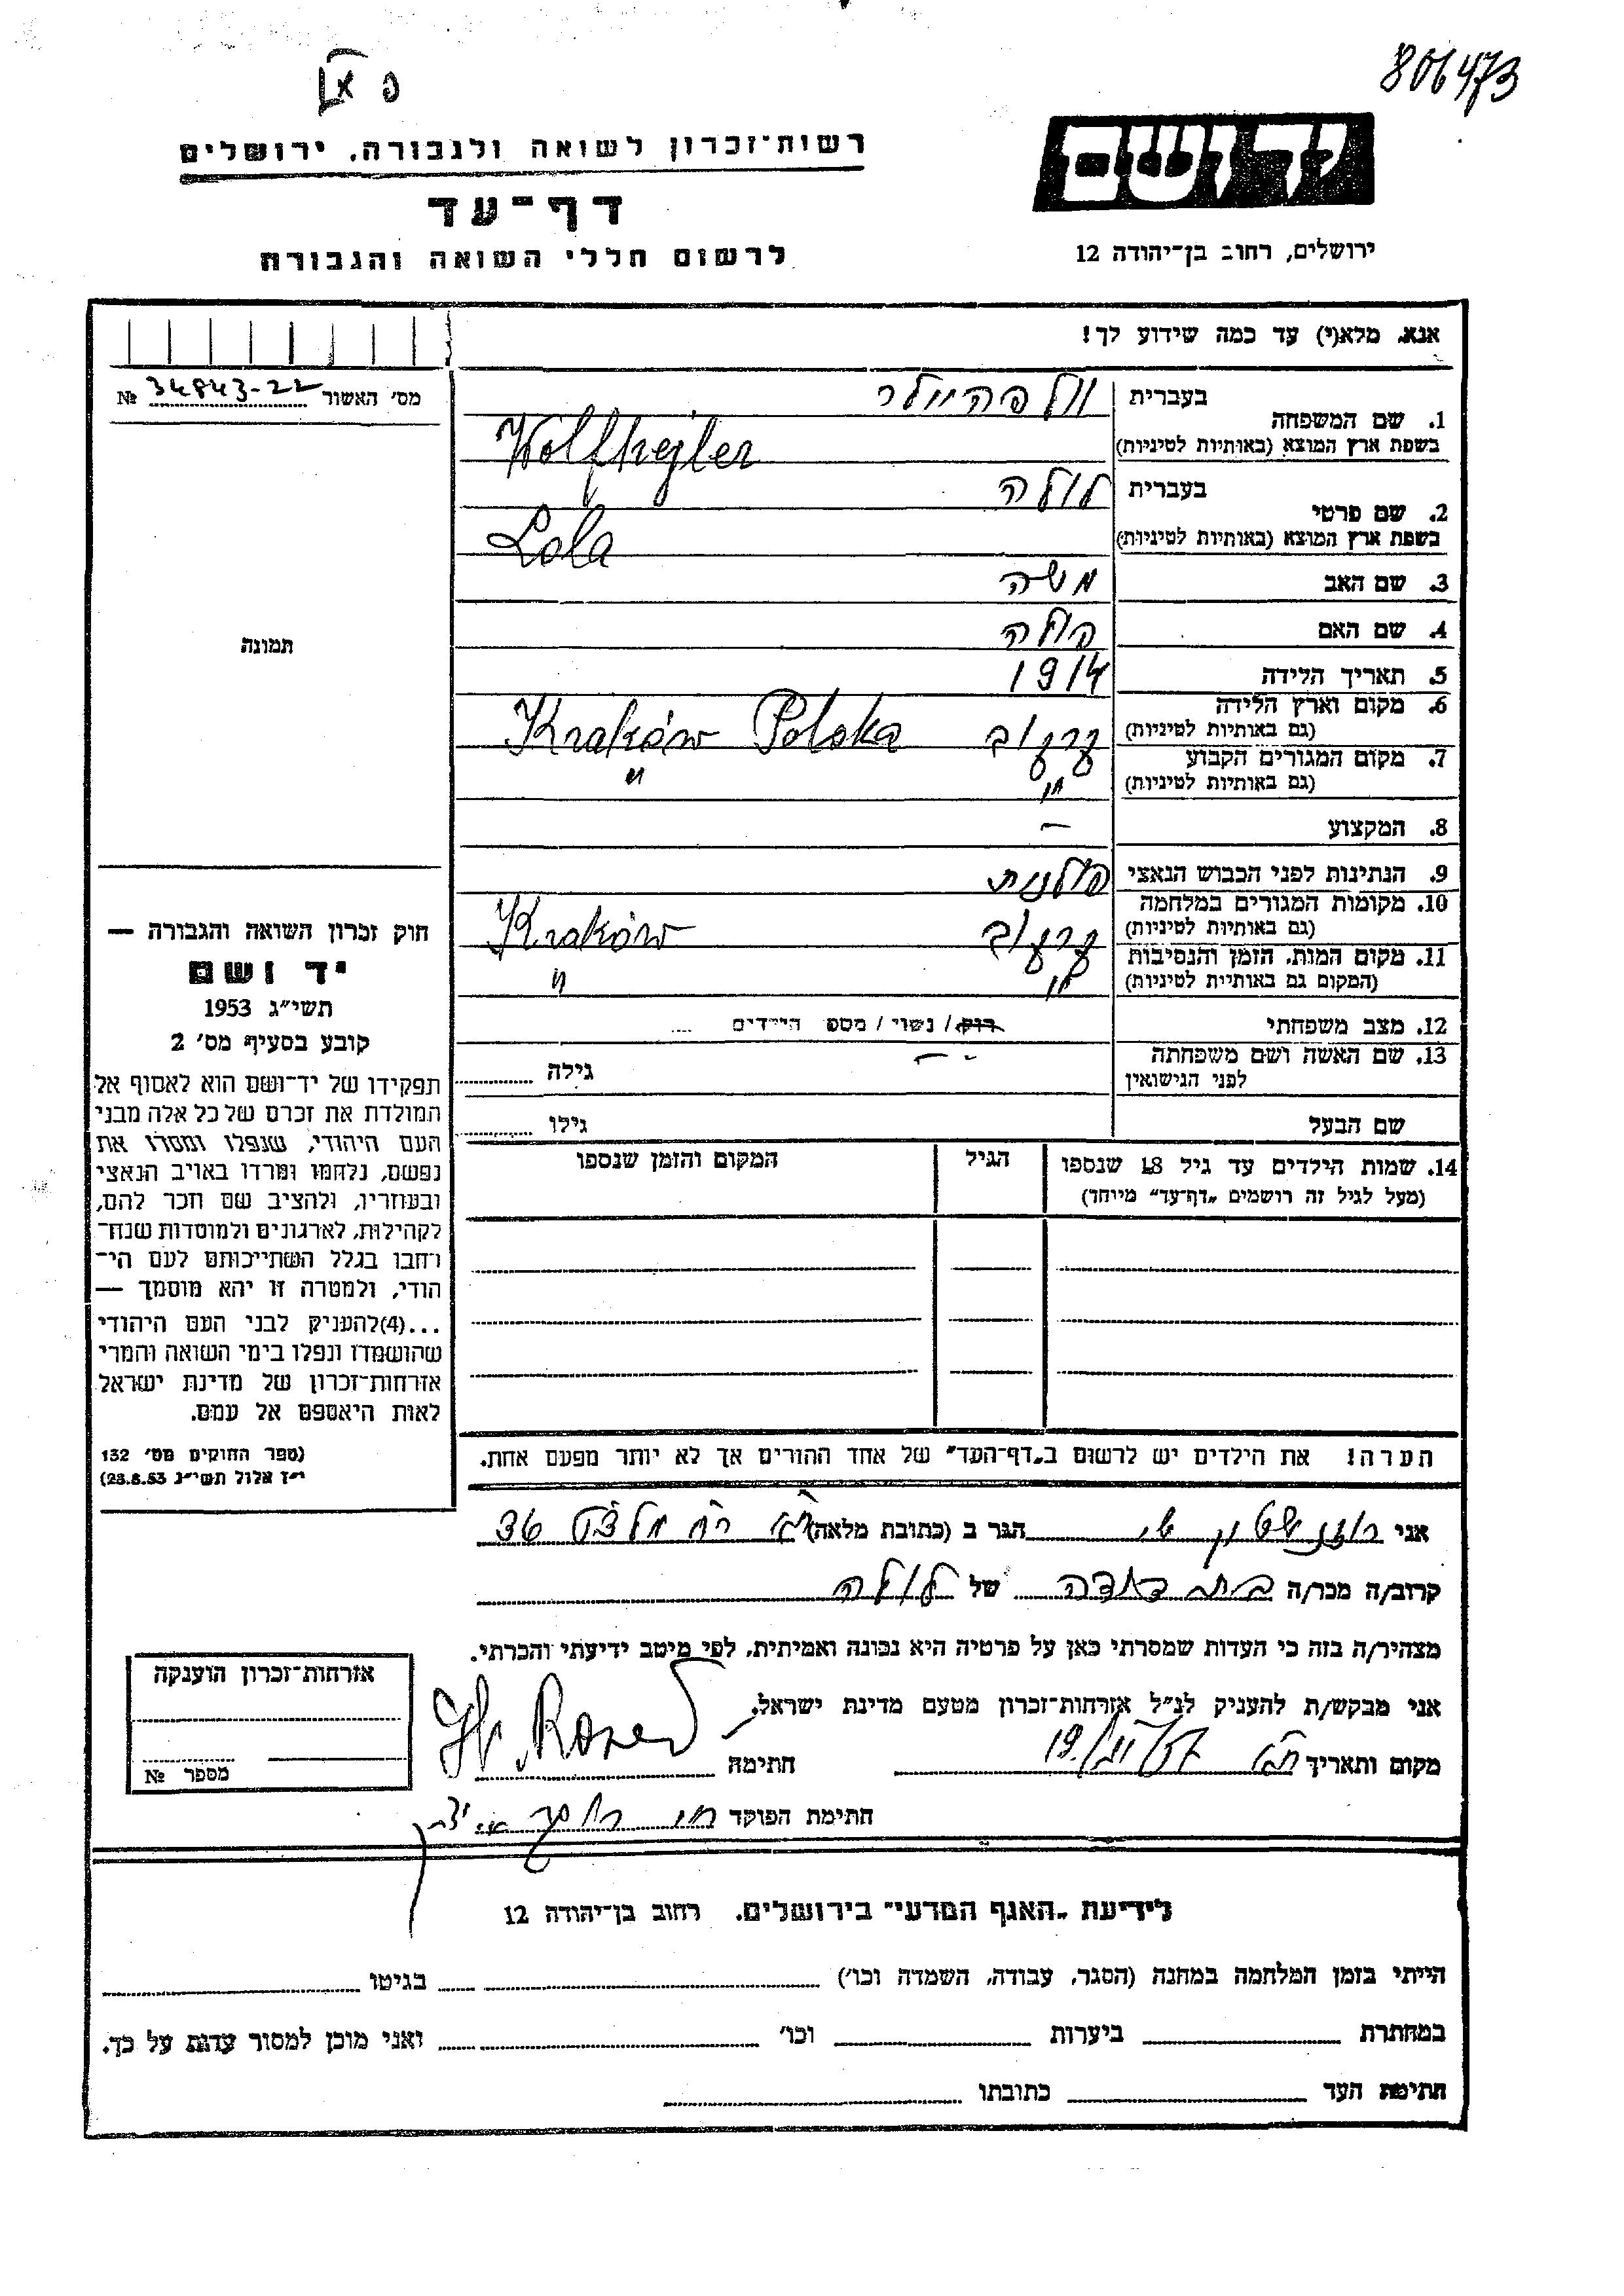 806473
רשות־זכרון לשואה ולגבורה, ירושלים
דף־עד
לרשום חללי השואה והגבורה
יד ושם
ירושלים, רחוב בן־יהודה 12
אנא, מלא(י) עד כמה שידוע לך!
מס׳ האשור 34843-22 №
1. שם המשפחה
בעברית וולפהיילר
בשפת ארץ המוצא (באותיות לטיניות) Wolfhejler
2. שם פרטי
בעברית לולה
בשפת ארץ המוצא (באותיות לטיניות) Lola
3. שם האב משה
4. שם האם
5. תאריך הלידה 1914
6. מקום וארץ הלידה
(גם באותיות לטיניות) קרקוב Kraków Polska
7. מקום המגורים הקבוע
(גם באותיות לטיניות) " "
8. המקצוע –
9. הנתינות לפני הכבוש הנאצי פולנית
10. מקומות המגורים במלחמה
(גם באותיות לטיניות) קרקוב Kraków
11. מקום המות, הזמן והנסיבות
(המקום גם באותיות לטיניות) " "
12. מצב משפחתי רוק / נשוי / מספ הילדים ....
13. שם האשה ושם משפחתה
לפני הנישואין – גילה
שם הבעל גילו
14. שמות הילדים עד גיל 18 שנספו
(מעל לגיל זה רושמים „דף־עד” מייחד)
הגיל
המקום והזמן שנספו
תמונה
חוק זכרון השואה והגבורה —
יד ושם
תשי״ג 1953
קובע בסעיף מס׳ 2
תפקידו של יד־ושם הוא לאסוף אל
המולדת את זכרם של כל אלה מבני
העם היהודי, שנפלו ומסרו את
נפשם, נלחמו ומרדו באויב הנאצי
ובעוזריו, ולהציב שם וזכר להם,
לקהילות, לארגונים ולמוסדות שנח־
רבו בגלל השתייכותם לעם הי־
הודי, ולמטרה זו יהא מוסמך —
...(4)להעניק לבני העם היהודי
שהושמדו ונפלו בימי השואה והמרי
אזרחות־זכרון של מדינת ישראל
לאות היאספם אל עמם.
(ספר החוקים מס׳ 132
י״ז אלול תשי״ג 28.8.53)
הערה! את הילדים יש לרשום ב„דף־העד” של אחד ההורים אך לא יותר מפעם אחת.
אני הגר ב (כתובת מלאה)
קרוב/ה מכר/ה בת דודה של לולה
מצהיר/ה בזה כי העדות שמסרתי כאן על פרטיה היא נכונה ואמיתית, לפי מיטב ידיעתי והכרתי.
אני מבקש/ת להעניק לנ״ל אזרחות־זכרון מטעם מדינת ישראל.
מקום ותאריך חתימה
חתימת הפוקד
אזרחות־זכרון הוענקה
מספר №
לידיעת „האגף המדעי” בירושלים, רחוב בן־יהודה 12
הייתי בזמן המלחמה במחנה (הסגר, עבודה, השמדה וכו׳) בגיטו
במחתרת ביערות וכו׳ ואני מוכן למסור עדות על כך.
חתימת העד כתובתו